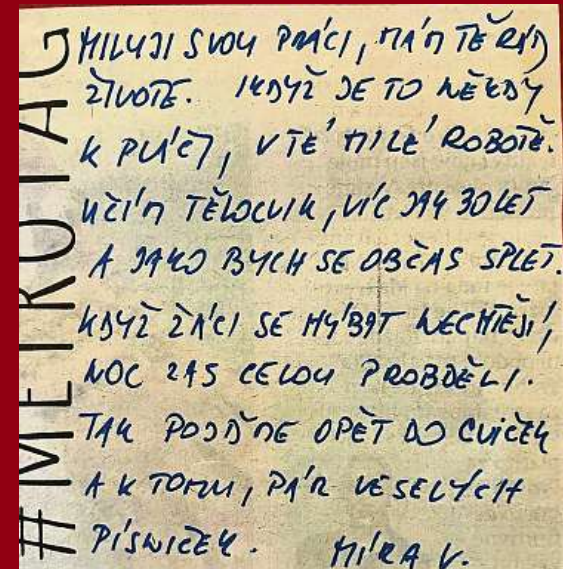 #METROTAG
MILUJI SVOU PRÁCI, MÁM TĚ RÁD
ŽIVOTE. I KDYŽ JE TO NĚKDY
K PLÁČI, V TÉ MILÉ ROBOTĚ.
UČÍM TĚLOCVIK, VÍC JAK 30 LET
A JAKO BYCH SE OBČAS SPLET.
KDYŽ ŽÁCI SE HÝBAT NECHTĚJÍ,
NOC ZAS CELOU PROBDĚLI.
TAK POJĎME OPĚT DO CVIČEK
A K TOMU, PÁR VESELÝCH
PÍSNIČEK. MÍRA V.